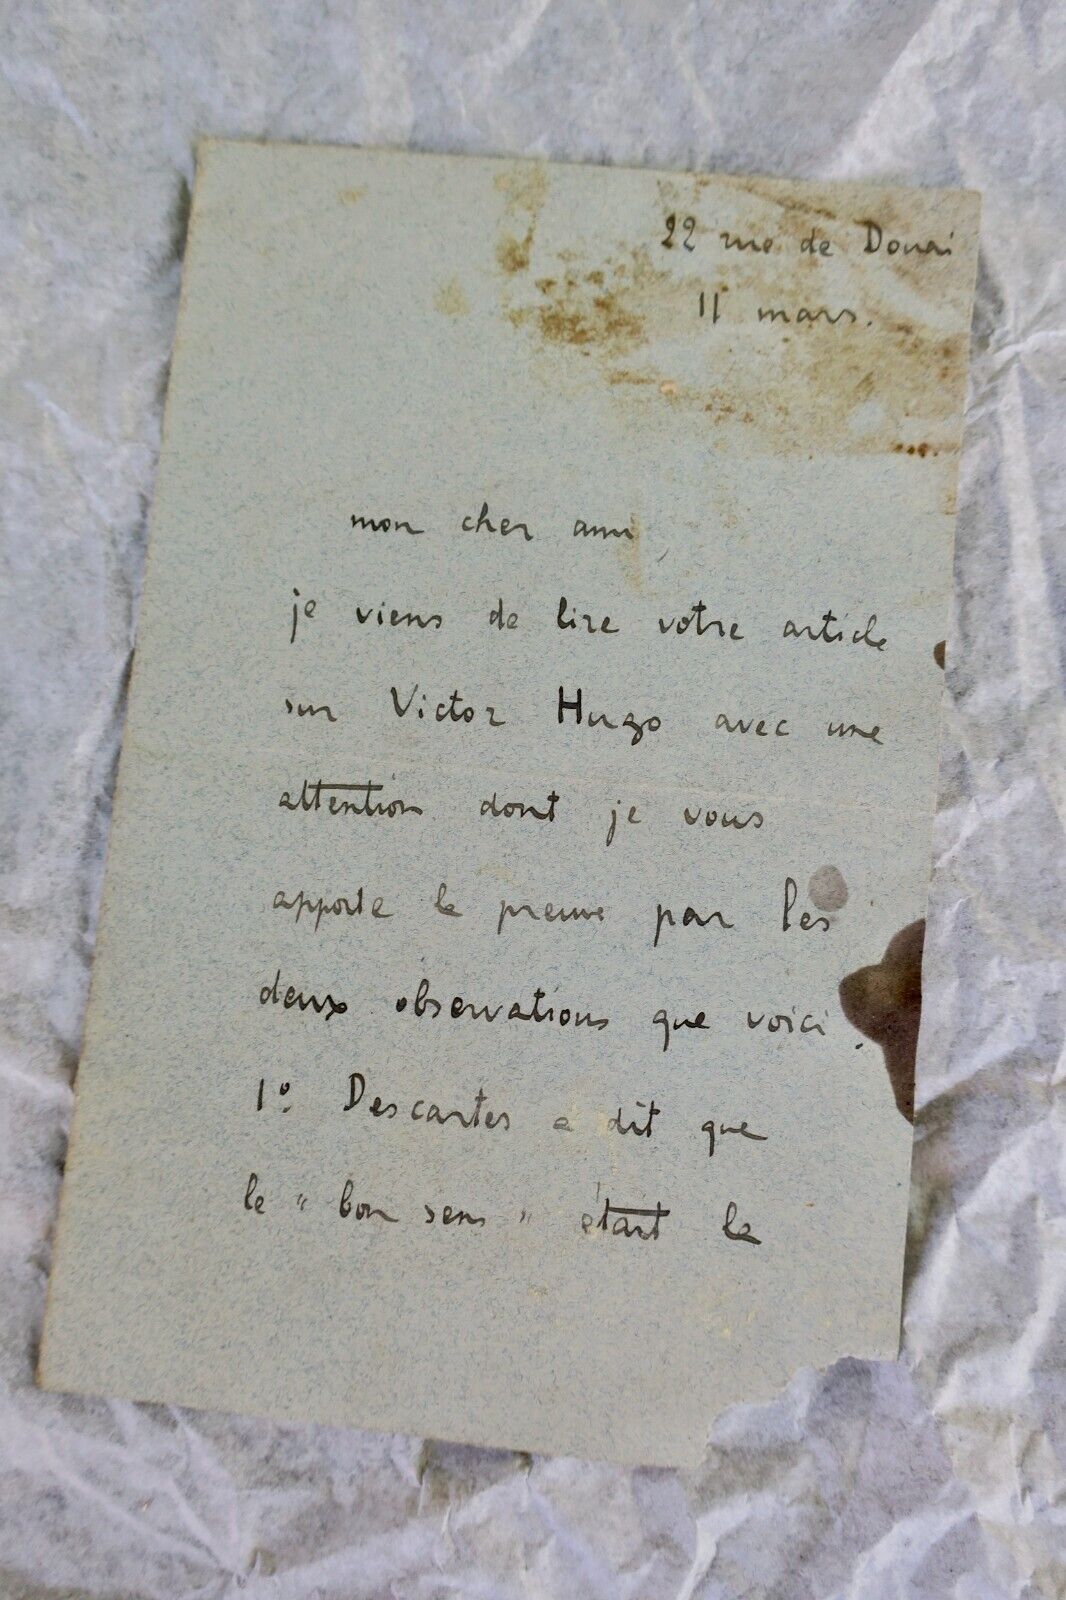 22 rue de Douai
11 mars.
mon cher ami,
je viens de lire votre article
sur Victor Hugo avec une
attention dont je vous
apporte la preuve par les
deux observations que voici.
1º. Descartes a dit que
le "bon sens" était la